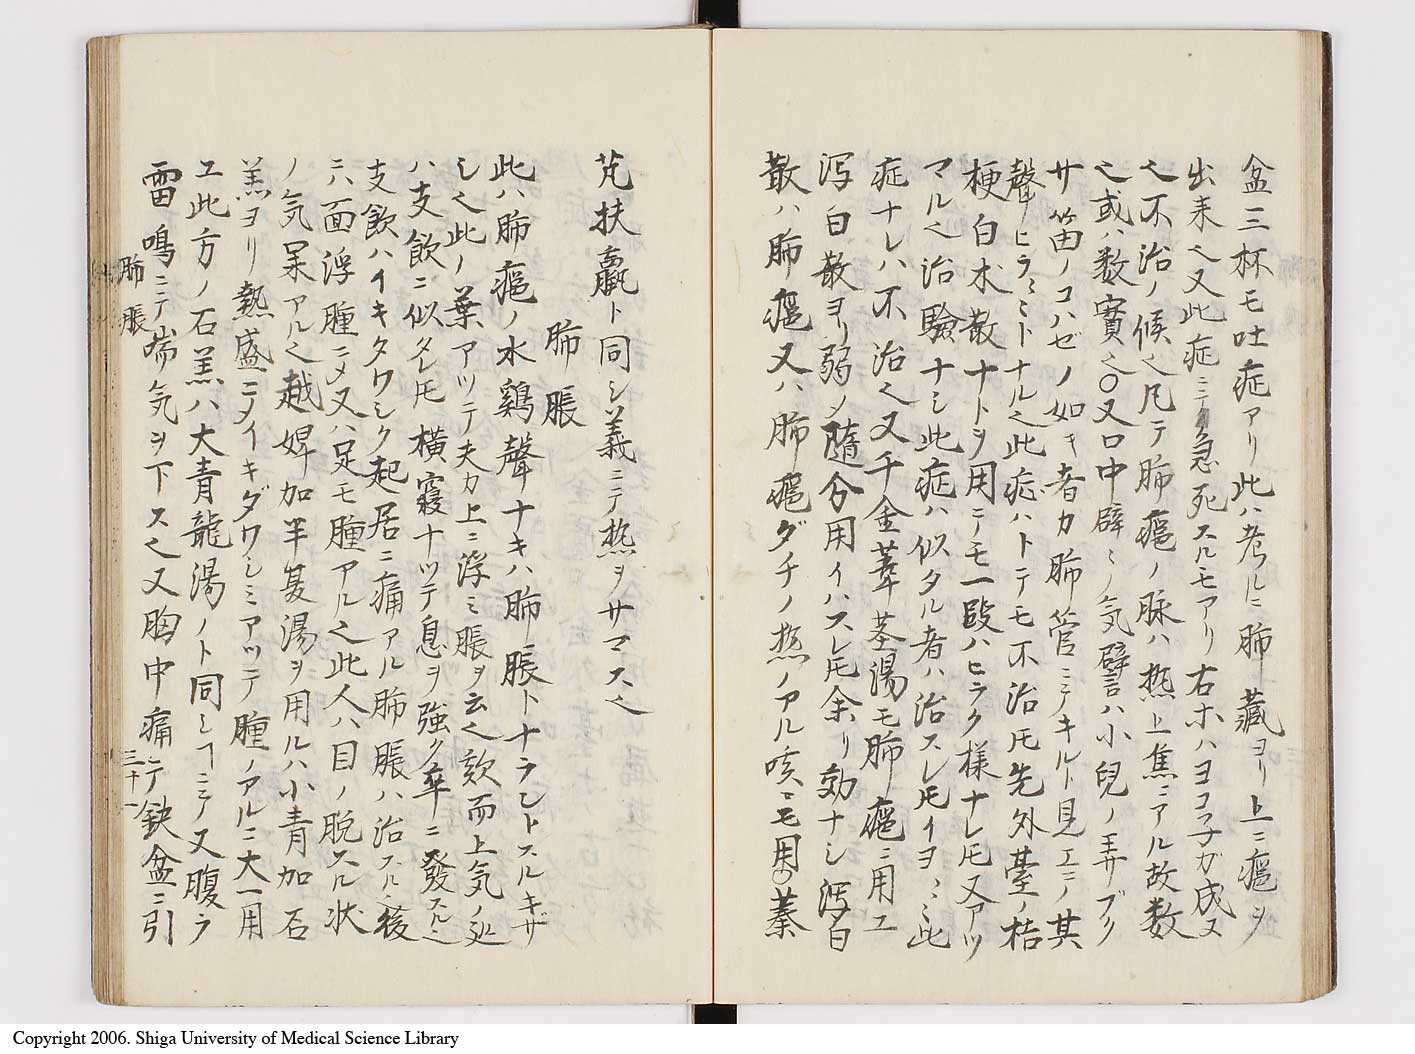 盆三杯モ吐症アリ此ハ考ルニ肺藏ヨリ上ニ瘟ヲ
出来之又此症ニテ急死スルモアリ右ホハヨコ子ガ成ヌ
之不治ノ候之凡テ肺瘟ノ脉ハ熱上焦ニアル故数
之或ハ数實之〇又口中辟〻ノ気譬ハ小兒ノ
サ笛ノコハゼノ如キ者カ肺管ニテキルト見エテ其
聲ヒラ〻ミトナル之此症ハトテモ不治トモ先外臺ノ桔
梗白朮散ナトヲ用テモ一段ハヒラク様ナレ𪜈又アツ
マル之治驗ナシ此症ハ似タル者ハ治スレ𪜈イヨ〻ミ此
症ナレハ不治之又千金葦莖湯モ肺瘟ニ用ユ
瀉白散ヨリ弱メ随分用イハスレ𪜈余リ効ナシ瀉白
散ハ肺瘟又ハ肺瘟ダチノ熱ノアル咳ニモ用ノ蓁
芁扶羸ト同シ義ニテ熱ヲサマス之
肺脹
此ハ肺瘟ノ水鷄聲ナキハ肺脹トナラントスルキザ
シ之此ノ葉アツテ夫カ上ニ浮ミ脹ヲ云之欬而上気ノ
ハ支飲ニ似タレ𪜈横寢ナツテ息ヲ強ク卒ニ發スル之
支飲ハイキタワシク起居ニ痛アル肺脹ハ治スル後
ニハ面浮腫ニメ又ハ足モ腫アル之此人ハ目ノ脱スル状
ノ気呆アル之越婢加半夏湯ヲ用ルハ小青加石
羔ヨリ熱盛ニメイキダワシミアツテ腫ノアルニ大一用
エ此方ノ石羔ハ大青龍湯ノト同シヿニテ又腹ラ
雷鳴ニテ喘気ヲ下ス之又胸中痛ニテ鈌盆ニ引
肺脹
三十一
Copyright 2006. Shiga University of Medical Science Library